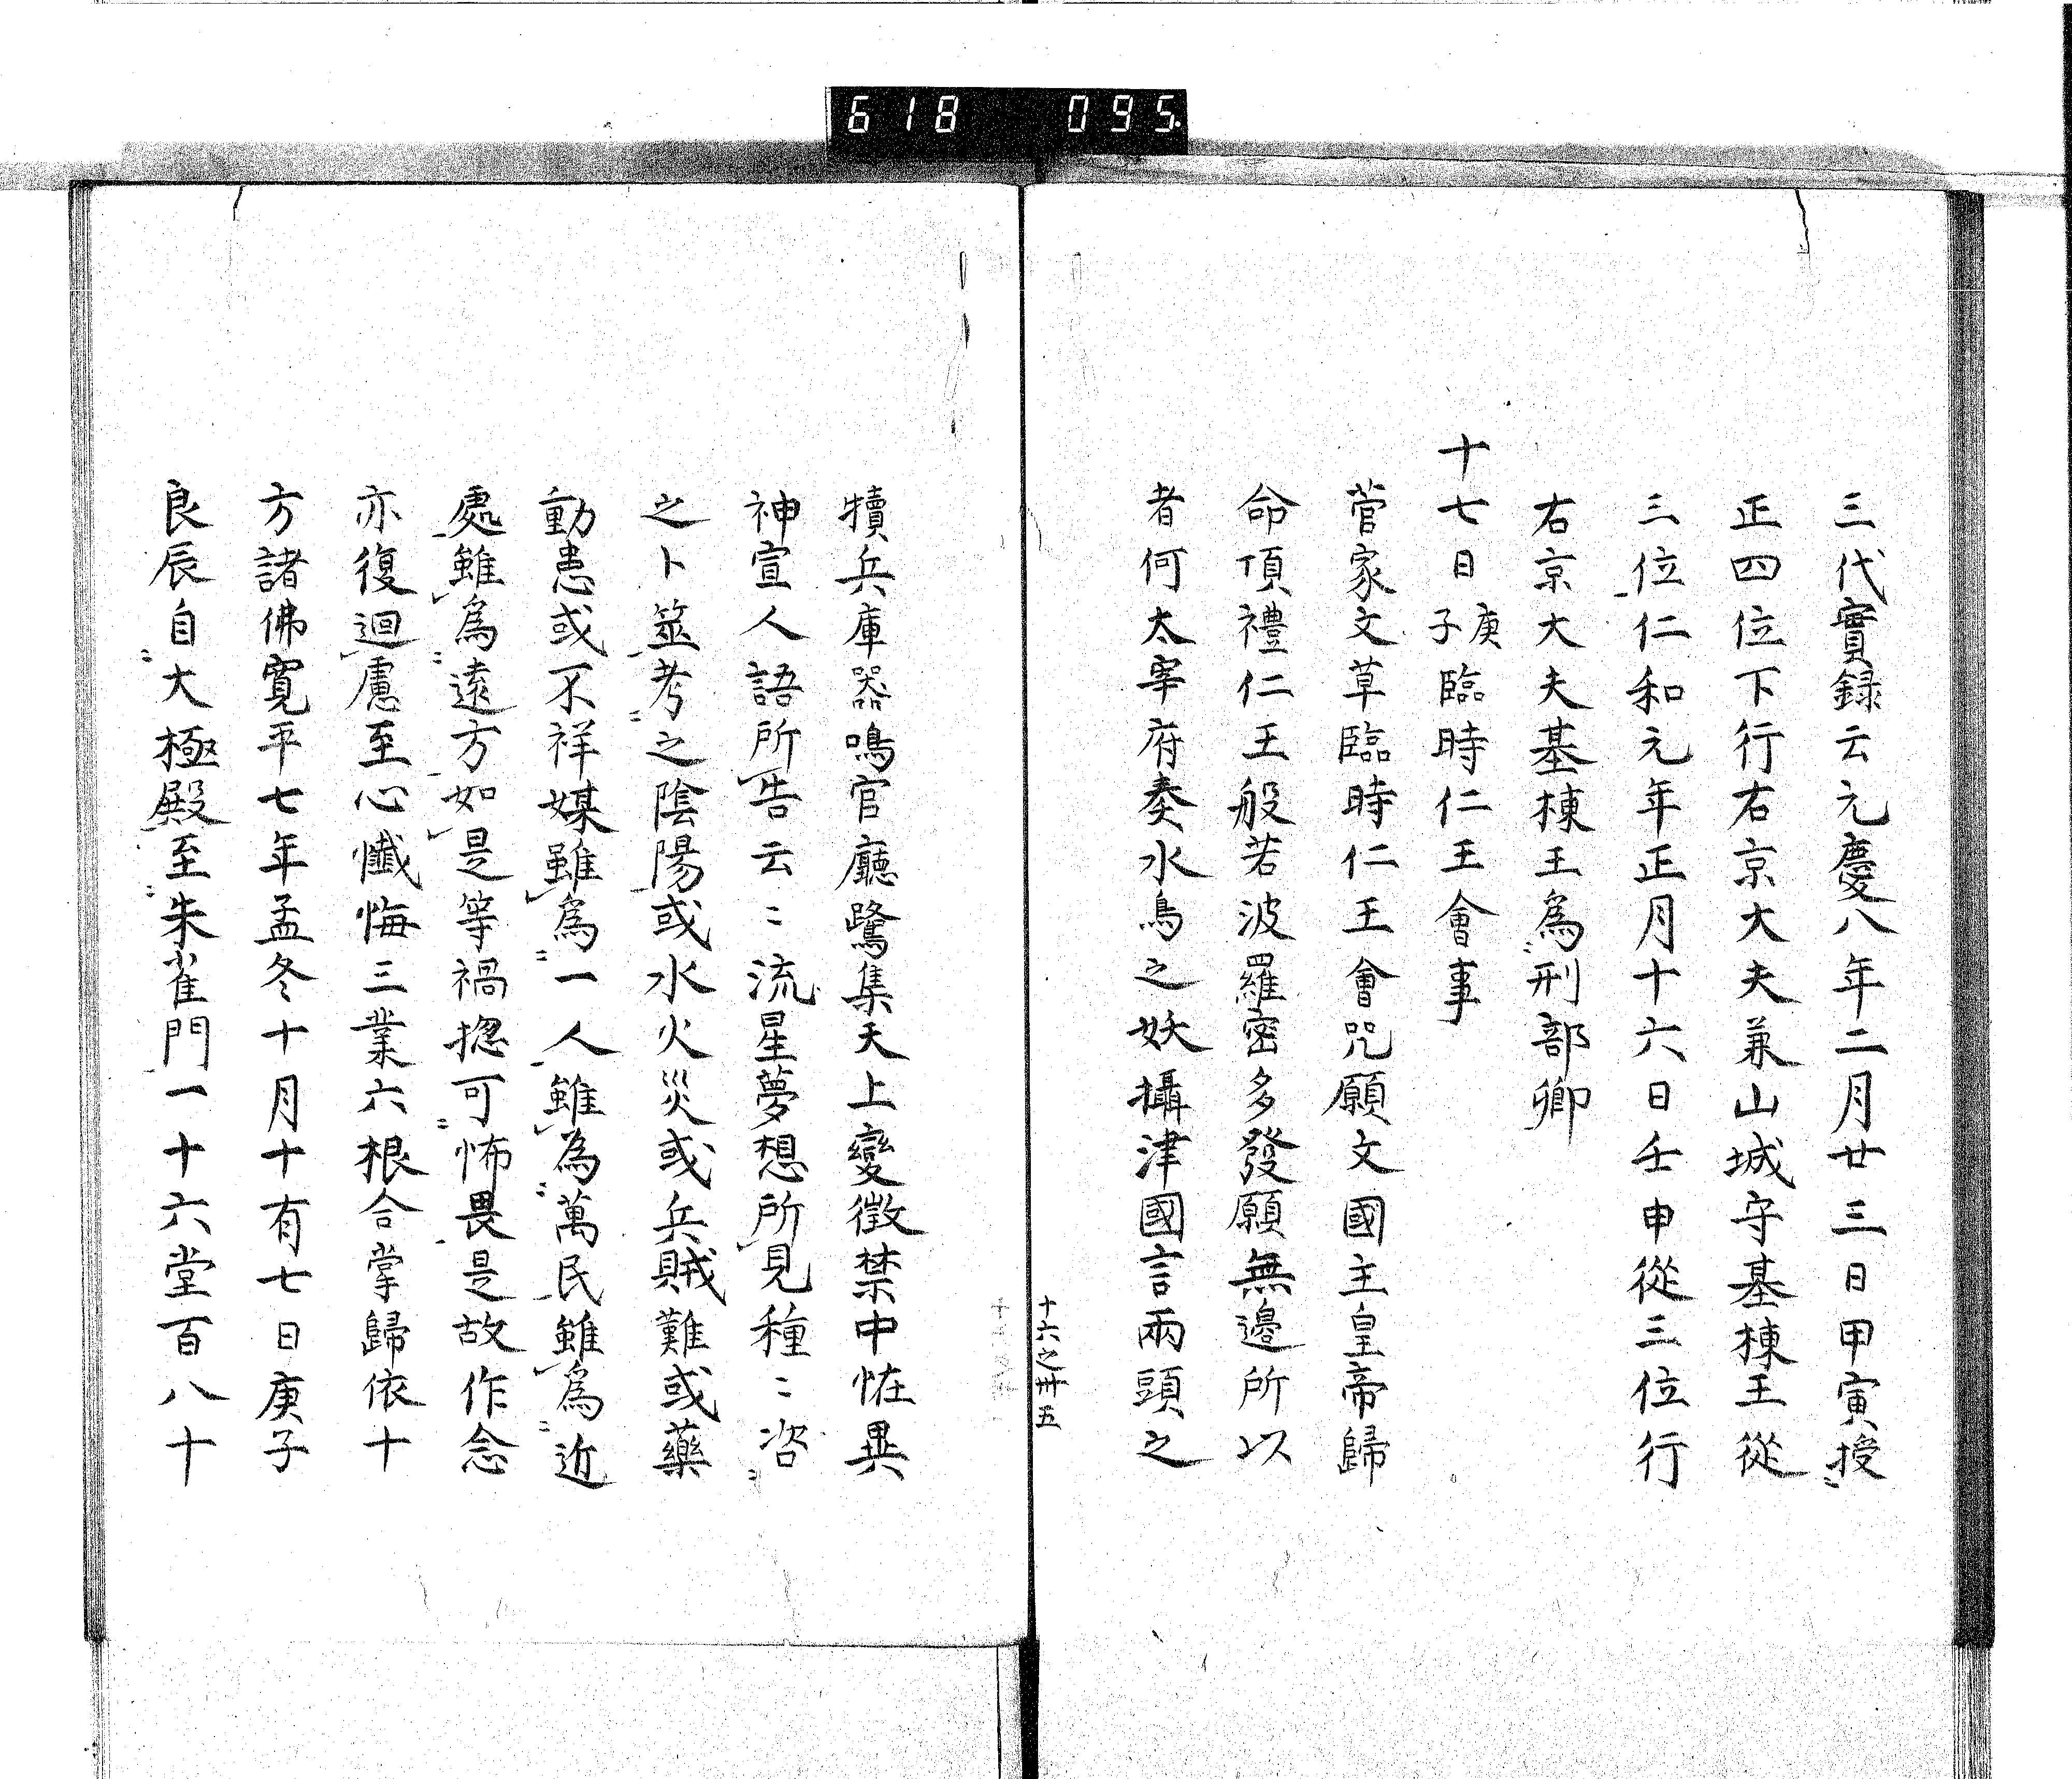 618 095
三代實録云元慶八年二月廿三日甲寅授
正四位下行右京大夫兼山城守基棟王從
三位仁和元年正月十六日壬申從三位行
右京大夫基棟王爲刑部卿
十七日庚子臨時仁王會事
菅家文草臨時仁王會咒願文國主皇帝歸
命頂禮仁王般若波羅密多發願無邊所以
者何太宰府奏水鳥之妖攝津國言兩頭之
十六之卅五
犢兵庫器鳴官廳鷺集天上變徴禁中恠異
神宣人語所告云〻流星夢想所見種〻咨
之卜筮考之陰陽或水火災或兵賊難或藥
動恚或不祥媒雖爲一人雖為萬民雖爲近
處雖爲遠方如是等禍揔可怖畏是故作念
亦復迴慮至心懺悔三業六根合掌歸依十
方諸佛寛平七年孟冬十月十有七日庚子
良辰自大極殿至朱雀門一十六堂百八十